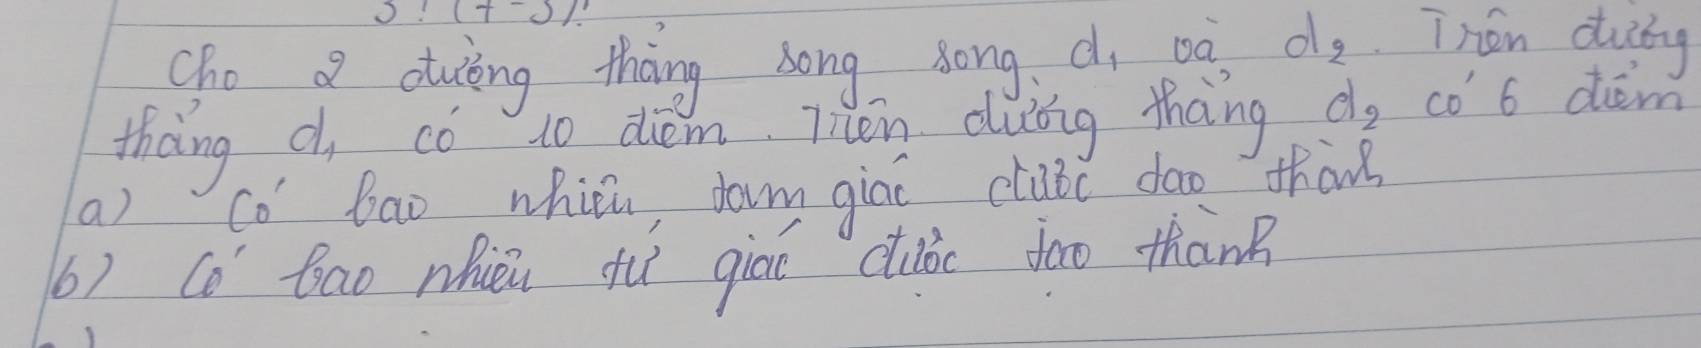 5! (7-5)!
Cho 2 đường thẳng song song d₁ và d₂. Trên đường
thẳng d₁ có 10 điểm. Trên đường thẳng d₂ có 6 điểm
a) Có bao nhiêu tam giác được tạo thành
b) Có bao nhiêu tứ giác được tạo thành